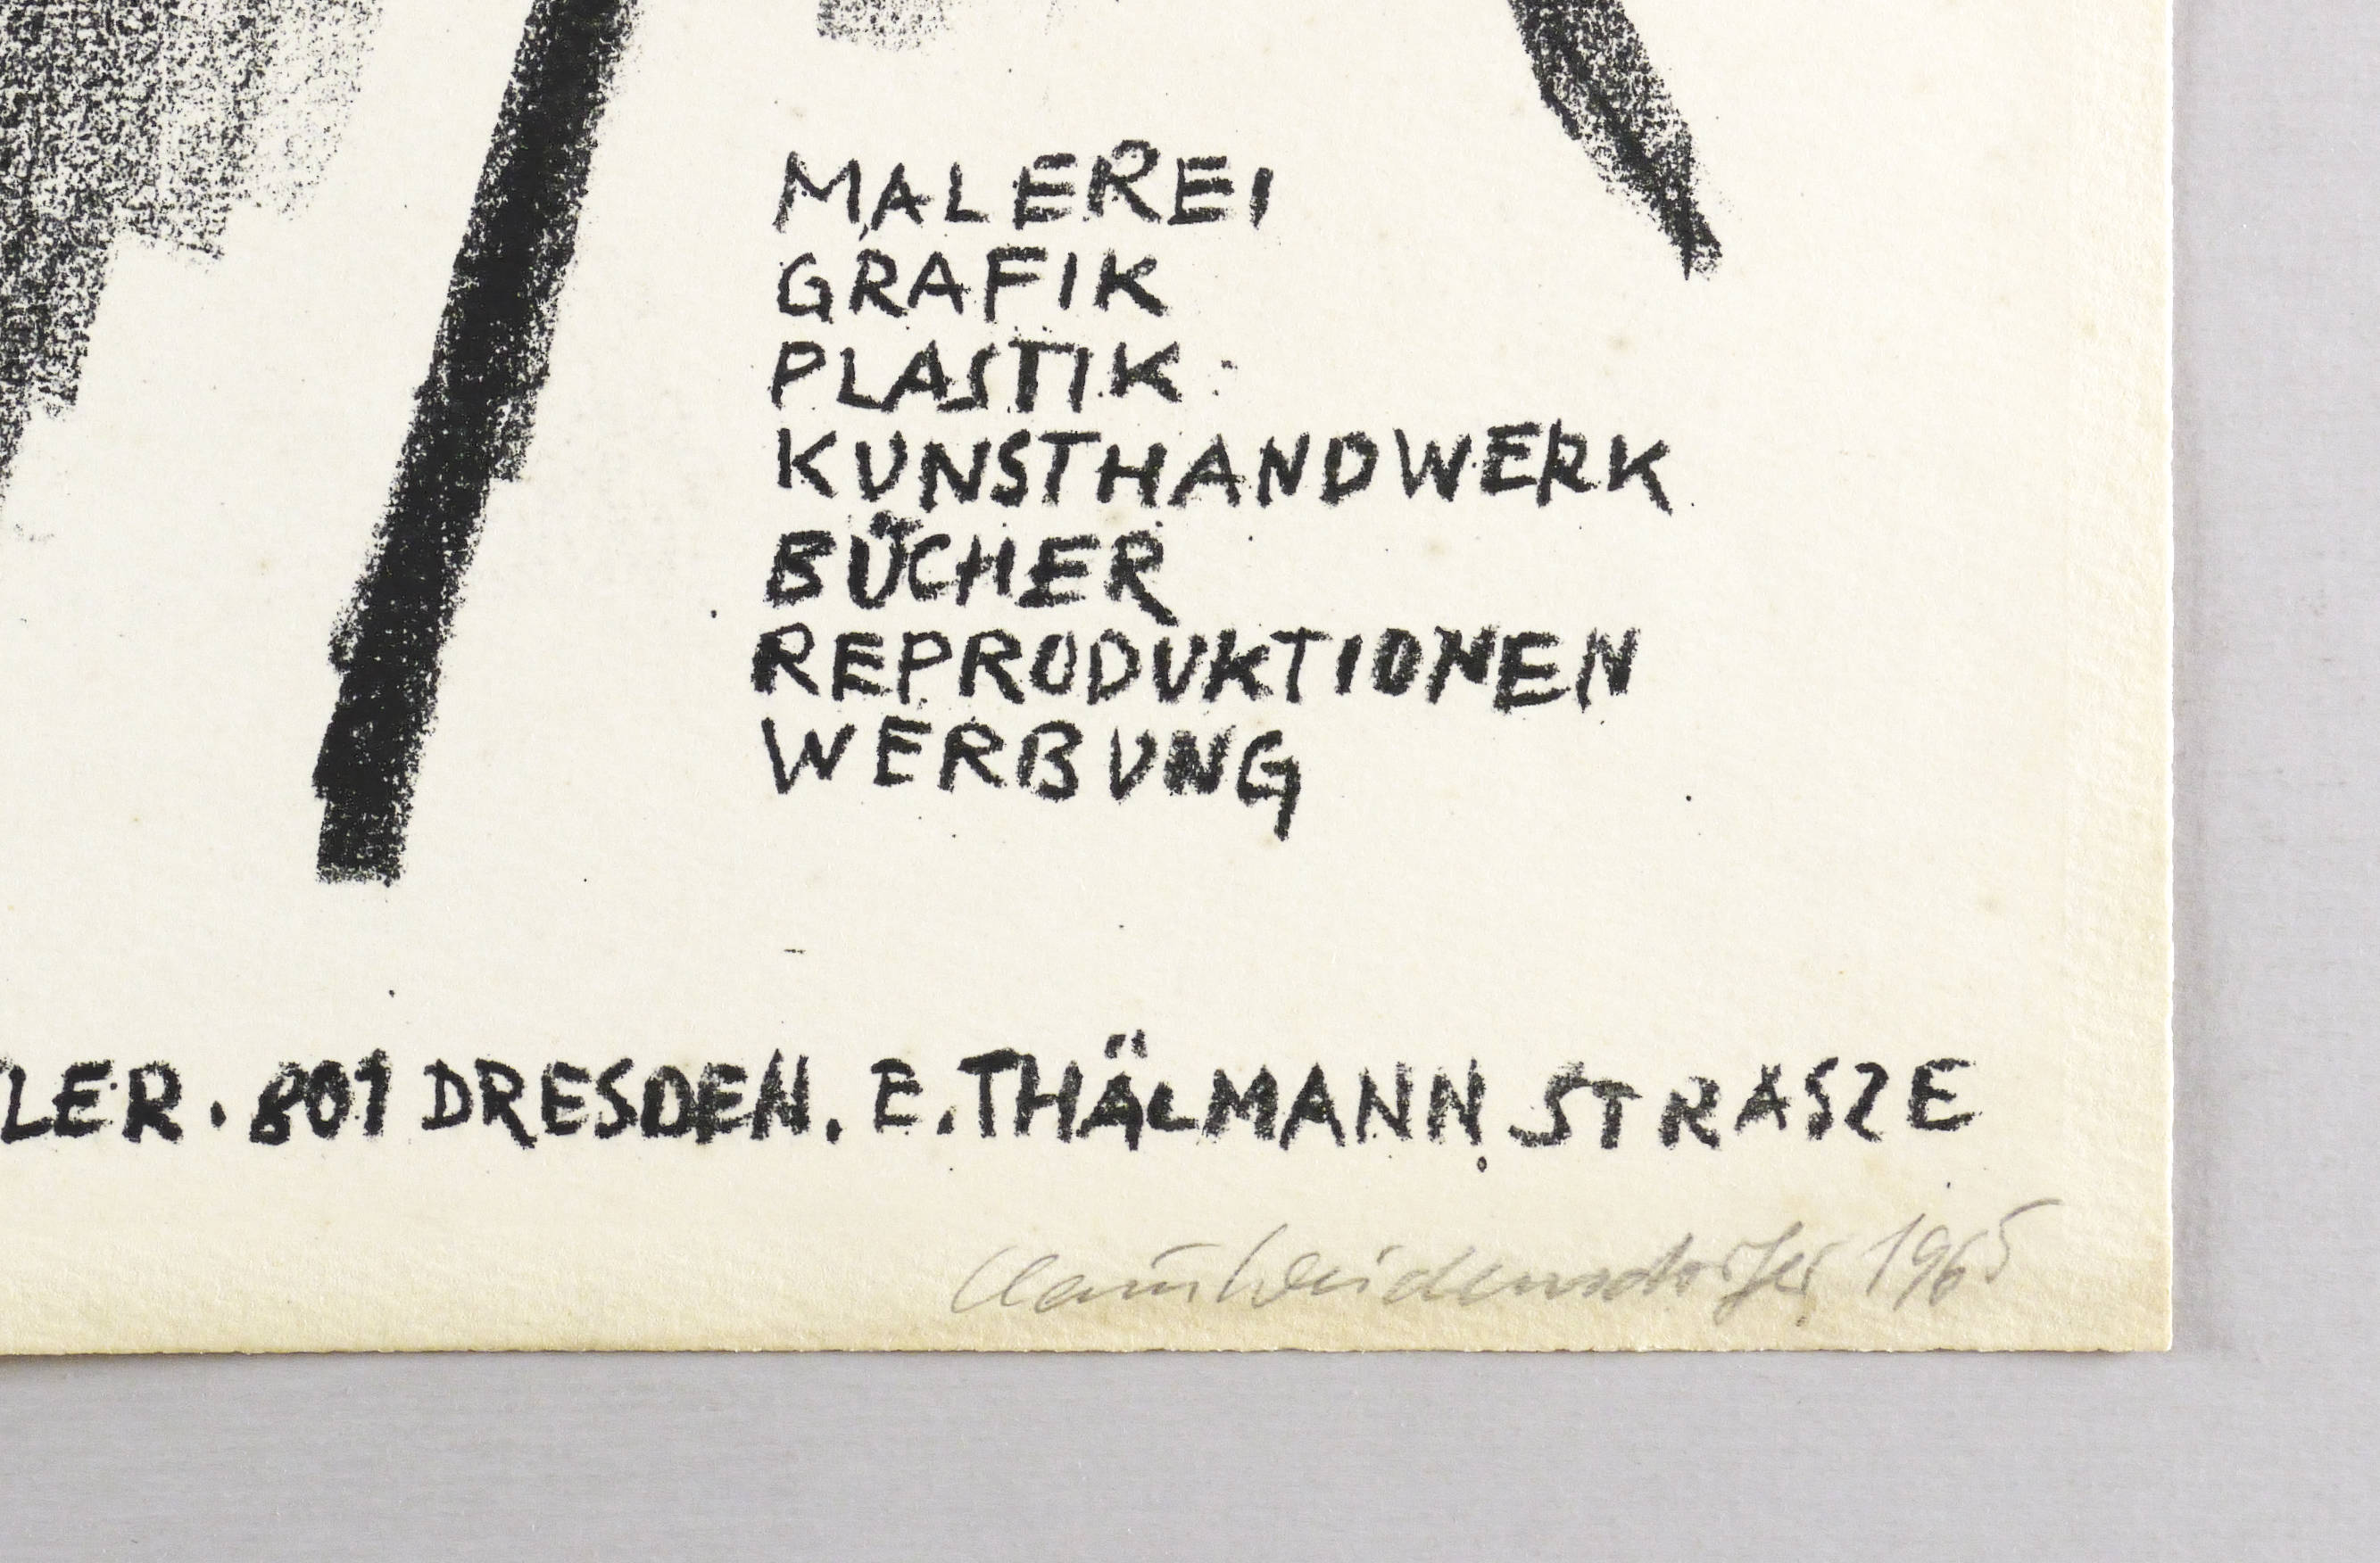 MALEREI
GRAFIK
PLASTIK
KUNSTHANDWERK
BÜCHER
REPRODUKTIONEN
WERBUNG
LER. 801 DRESDEN. E. THÄLMANN STRASZE
Claus Weidensdorfer 1965